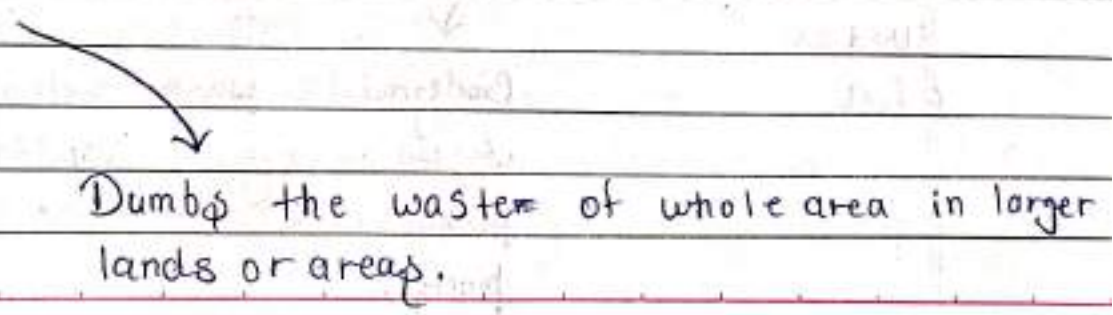 Dumbs the waste of whole area in larger
lands or areas.